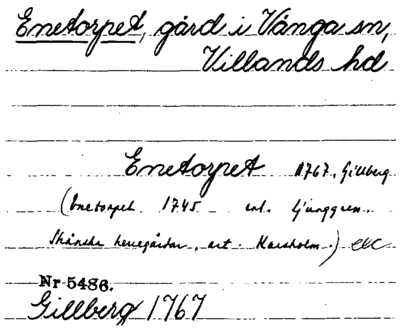 Enetorpet, gård i Vånga sn,
Villands hd
Enetorpet 1767, Gillberg
(Enetorpet 1745 enl. Ljunggren
Skånska herregårdar, art. Karsholm.) etc
Nr 5486.
Gillberg 1767